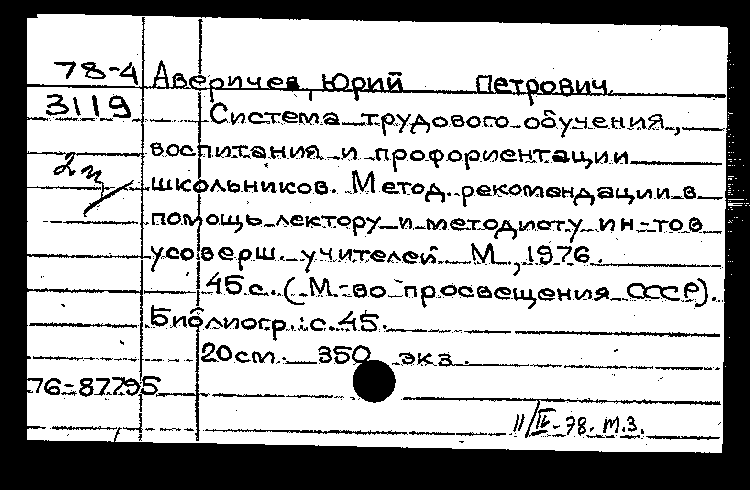 78-4 Аверичев, Юрий Петрович
3119 Система трудового обучения,
воспитания и профориентации
школьников. Метод. рекомендации в
помощь лектору и методисту ин-тов
усоверш. учителей. М., 1976.
45с. (М-во просвещения СССР).
Библиогр.: с. 45.
20см. 350 экз.
76-87795
11/IV-78. М.З.